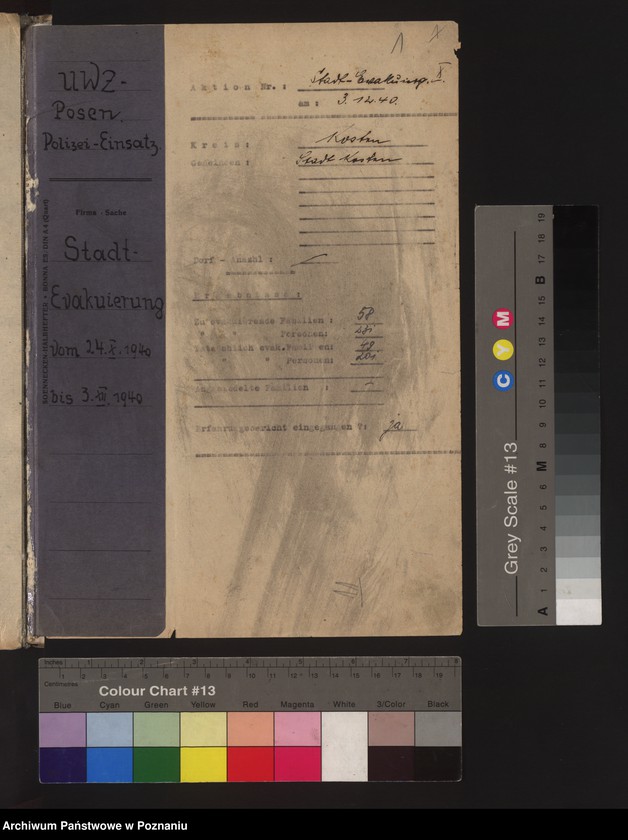 UWZ-
Posen.
Polizei-Einsatz.
Firma - Sache
Stadt-
Evakuierung
vom 24.X.1940
bis 3.XII.1940
SOENNECKEN-HALBHEFTER • BONNA 25: DIN A 4 (Quart)
Aktion Nr.: Stadt-Evakuierg. X.
am: 3.12.40.
Kreis: Kosten
Gemeinden: Stadt Kosten
Dorf - Anzahl: -
Ergebnisse:
Zu evakuierende Familien: 58
" " Personen:
Tatsächlich evak. Familien: 48
" " Personen: 201
Angesiedelte Familien : -
Erfahrungsbericht eingegangen ?: ja
Grey Scale #13
C Y M
A 1 2 3 4 5 6 M 8 9 10 11 12 13 14 15 B 17 18 19
Inches 1 2 3 4 5 6 7 8
Centimetres 1 2 3 4 5 6 7 8 9 10 11 12 13 14 15 16 17 18 19
Colour Chart #13
Blue Cyan Green Yellow Red Magenta White 3/Color Black
Archiwum Państwowe w Poznaniu